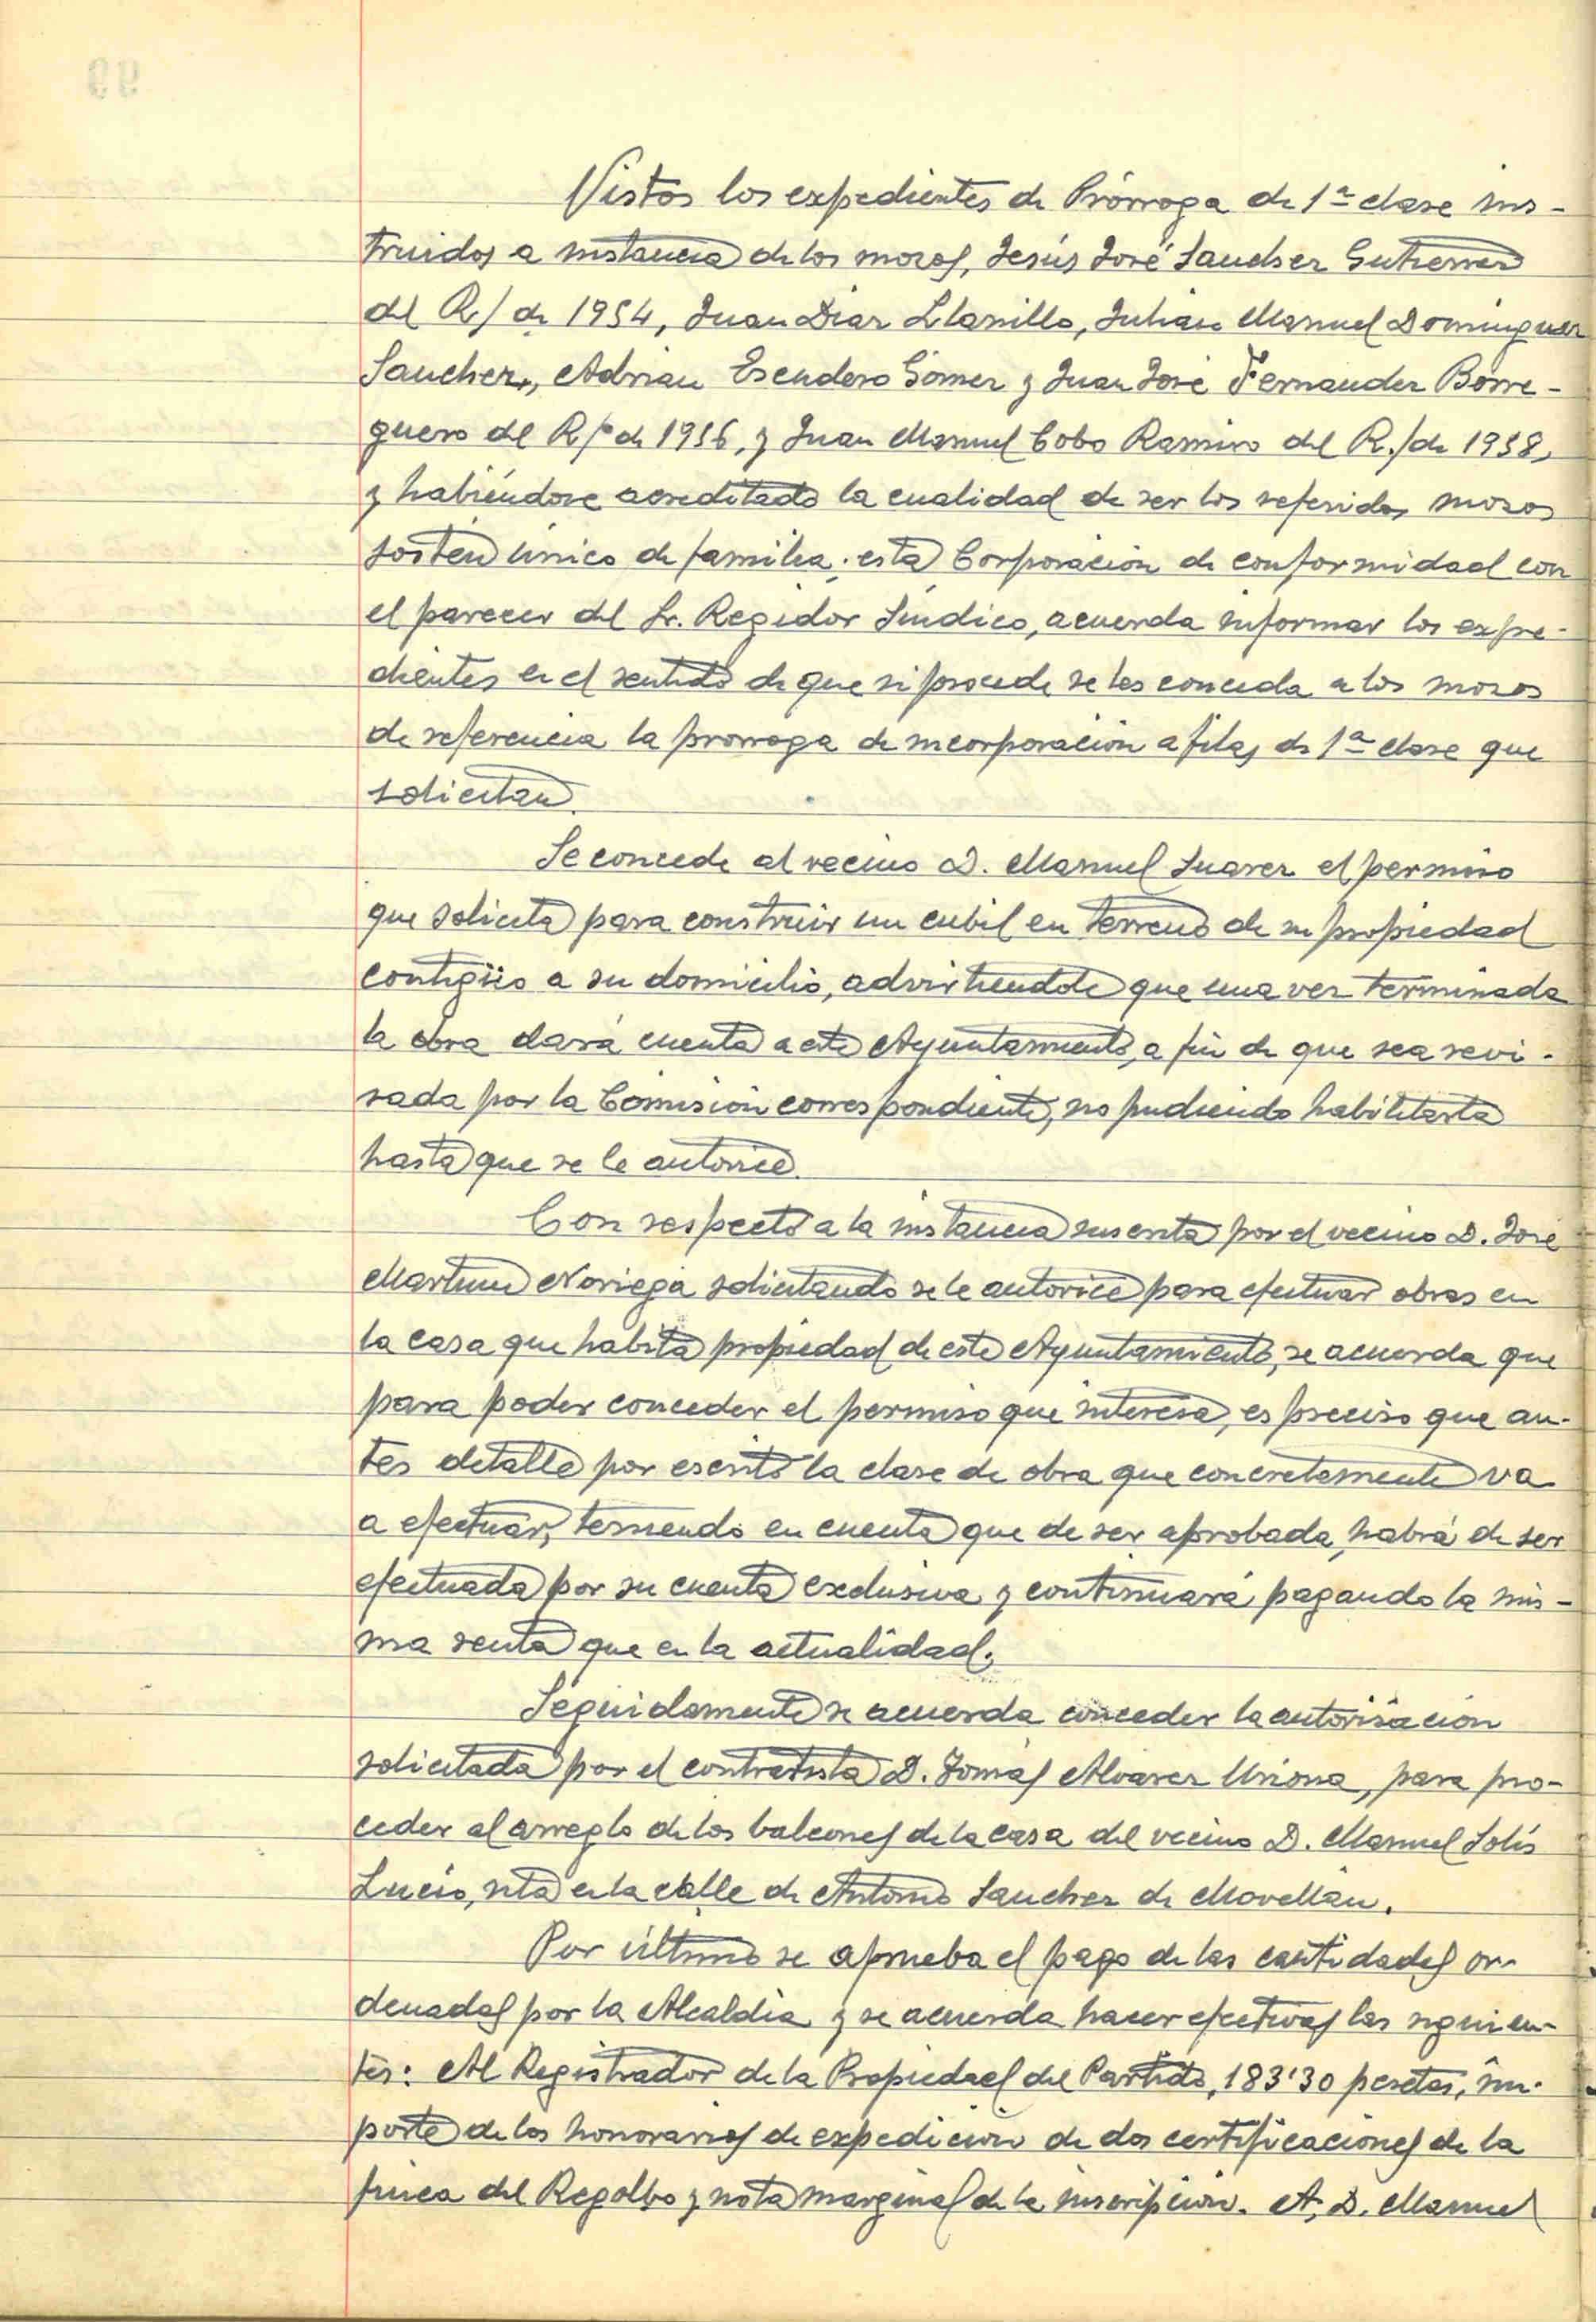 Vistos los expedientes de Prórroga de 1ª clase ins-
truidos a instancia de los mozos, Jesús José Sanchez Gutierrez
del R/ de 1954, Juan Diaz Llanillo, Julián Manuel Dominguez
Sanchez, Adrian Escudero Gómez y Juan José Fernandez Borre-
guero del R/º de 1956, y Juan Manuel Cobo Ramiro del R./ de 1958,
y habiéndose acreditado la cualidad de ser los referidos mozos
sostén único de familia; esta Corporación de conformidad con
el parecer del Sr. Regidor Síndico, acuerda informar los expe-
dientes en el sentido de que si procede se les conceda a los mozos
de referencia la prorroga de incorporación a filas de 1ª clase que
solicitan.
Se concede al vecino D. Manuel Suarez el permiso
que solicita para construir un cubil en terreno de su propiedad
contigüo a su domicilio, advirtiendole que una vez terminada
la obra dará cuenta a este Ayuntamiento, a fin de que sea revi-
sada por la Comisión correspondiente, no pudiendo habilitarla
hasta que se le autorice.
Con respecto a la instancia suscrita por el vecino D. José
Martin Noriega solicitando se le autorice para efectuar obras en
la casa que habita propiedad de este Ayuntamiento, se acuerda que
para poder conceder el permiso que interesa, es preciso que an-
tes detalle por escrito la clase de obra que concretamente va
a efectuar, teniendo en cuenta que de ser aprobada, habrá de ser
efectuada por su cuenta exclusiva y continuará pagando la mis-
ma renta que en la actualidad.
Seguidamente se acuerda conceder la autorización
solicitada por el contratista D. Tomás Alvarez Uriona, para pro-
ceder al arreglo de los balcones de la casa del vecino D. Manuel Solís
Lucio, sita en la calle de Antonio Sanchez de Movellán.
Por último se aprueba el pago de las cantidades or-
denadas por la Alcaldia y se acuerda hacer efectivas las siguien-
tes: Al Registrador de la Propiedad del Partido, 183'30 pesetas, im-
porte de los honorarios de expedición de dos certificaciones de la
finca del Regolbo y nota marginal de la inscripción. A, D. Manuel